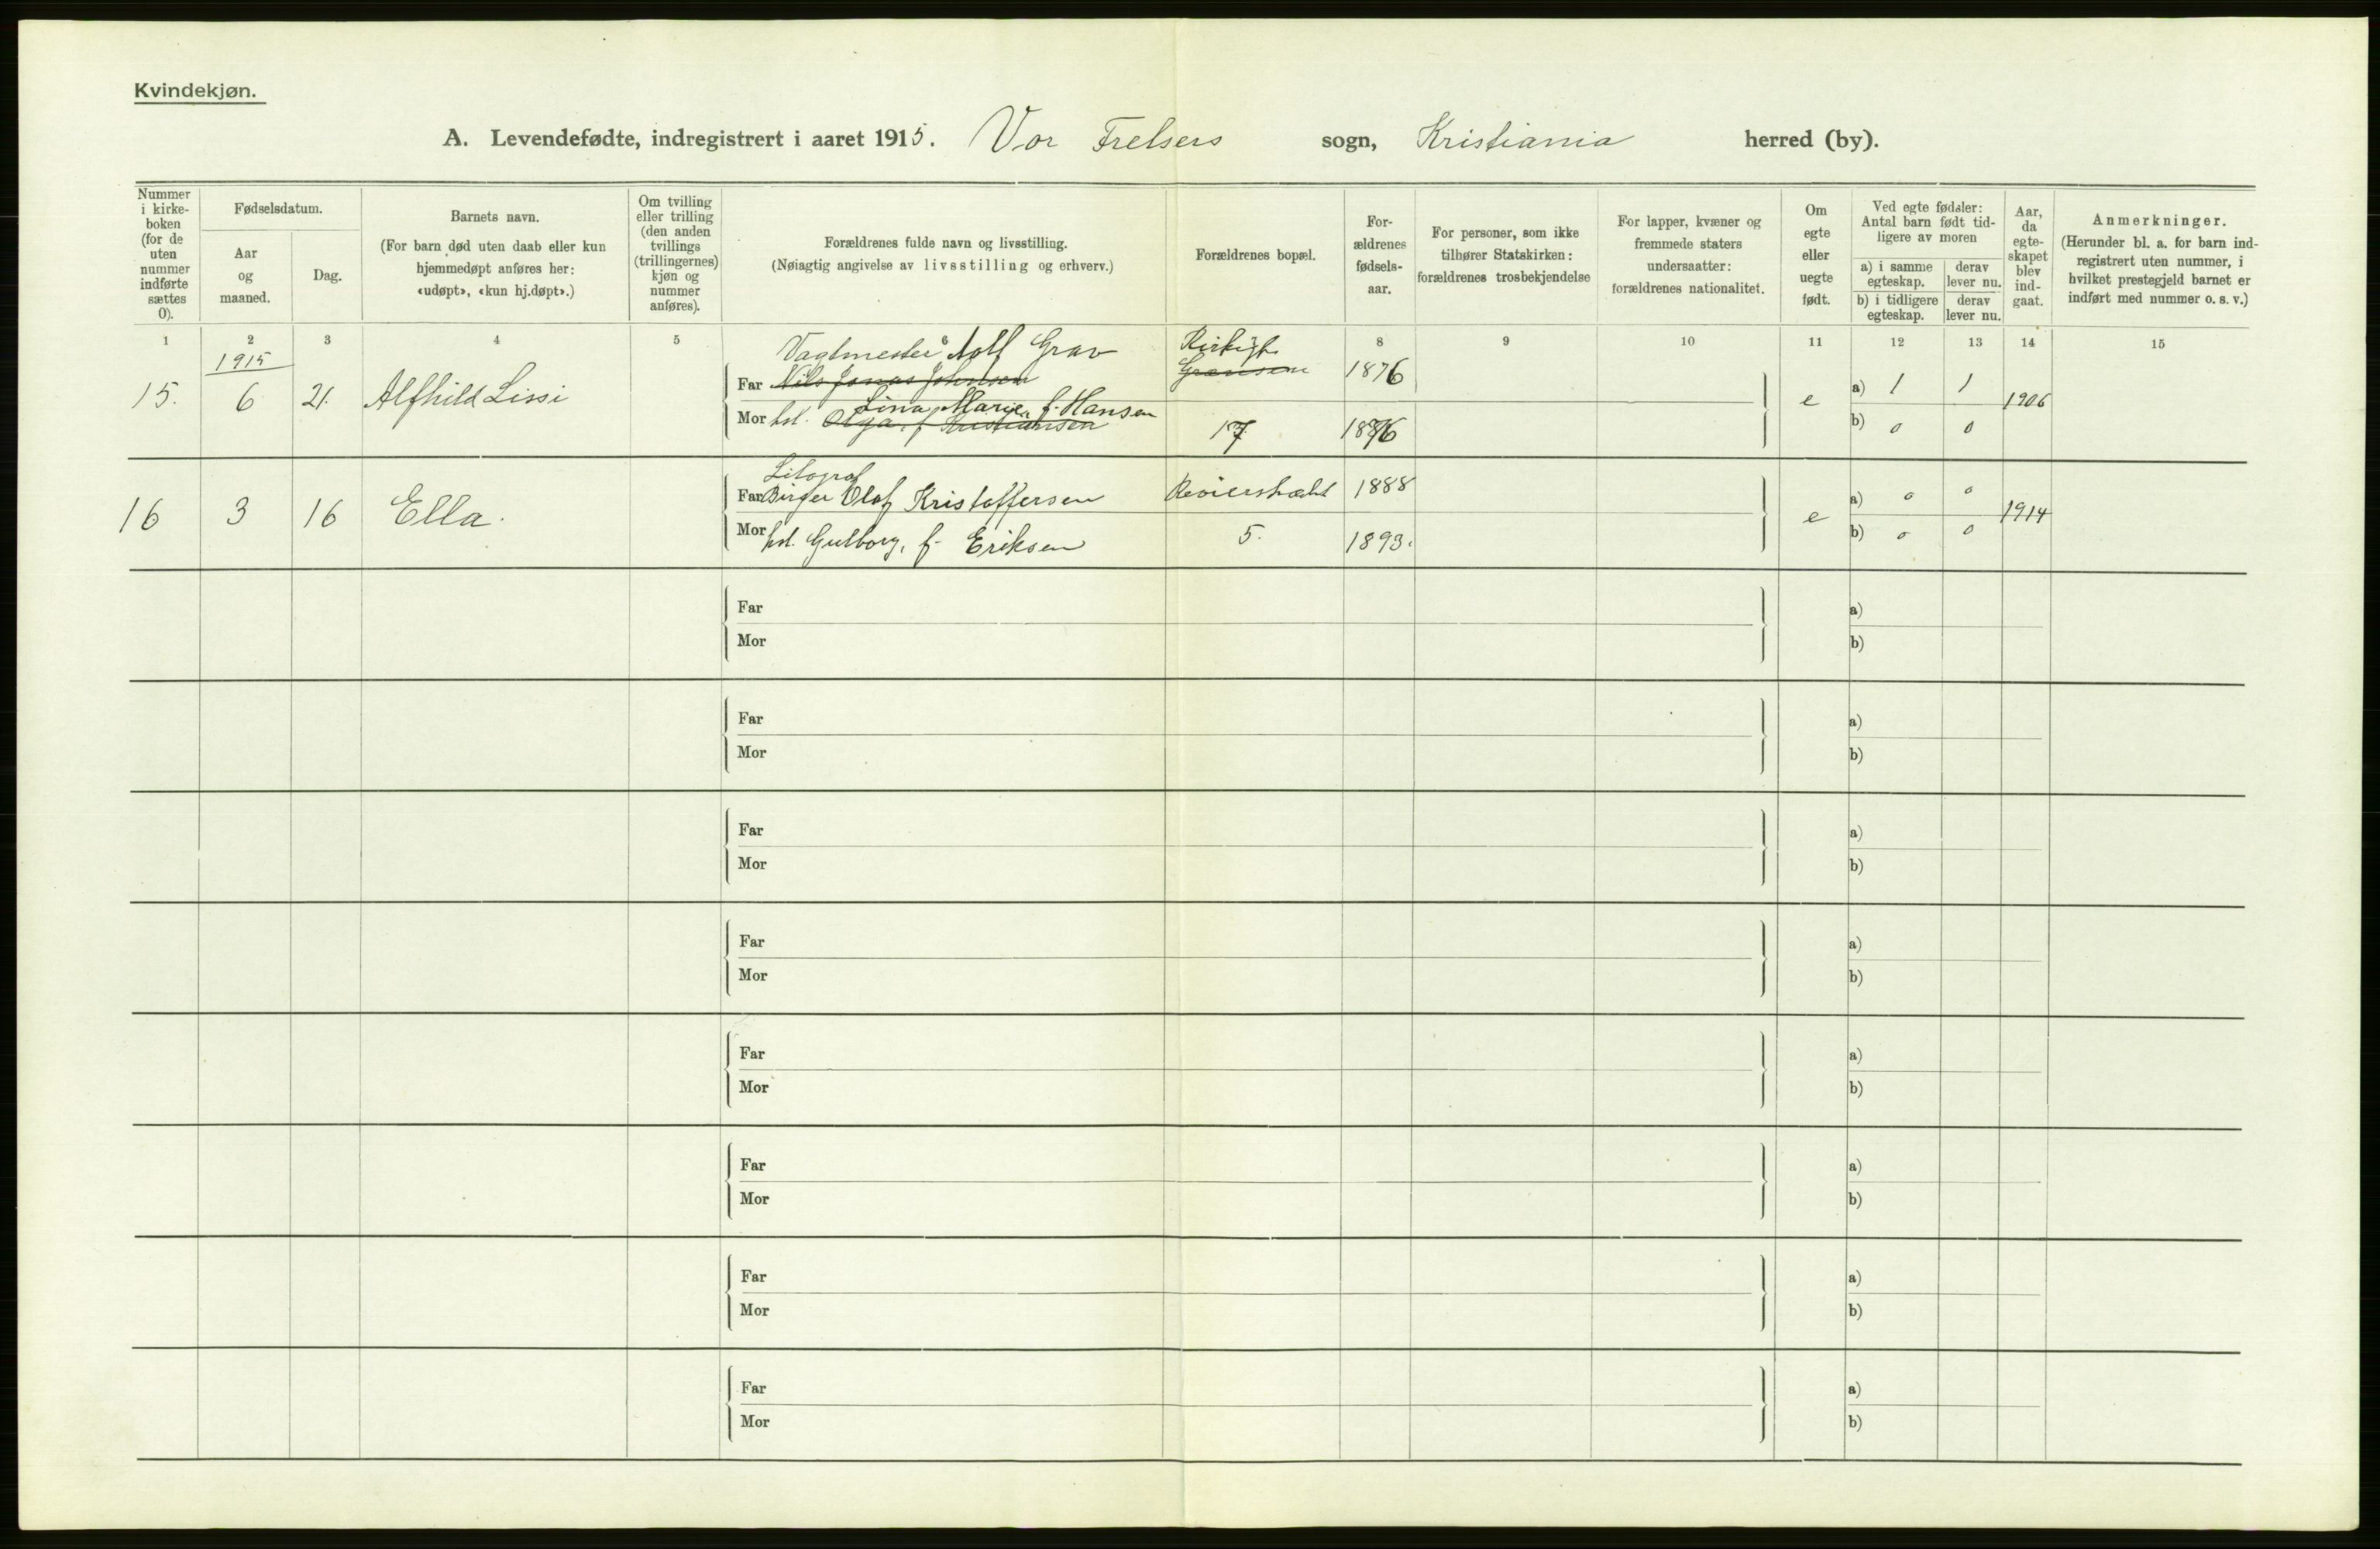 Kvindekjøn.
A. Levendefødte, indregistrert i aaret 1915. Vor Frelsers sogn, Kristiania herred (by).
Nummer i kirkeboken (for de uten nummer indførte sættes 0).
Fødselsdatum.
Aar og maaned.
Dag.
Barnets navn.
(For barn død uten daab eller kun hjemmedøpt anføres her: «udøpt», «kun hj.døpt».)
Om tvilling eller trilling (den anden tvillings (trillingernes) kjøn og nummer anføres).
Forældrenes fulde navn og livsstilling.
(Nøiagtig angivelse av livsstilling og erhverv.)
Forældrenes bopæl.
For-ældrenes fødsels-aar.
For personer, som ikke tilhører Statskirken: forældrenes trosbekjendelse
For lapper, kvæner og fremmede staters undersaatter: forældrenes nationalitet.
Om egte eller uegte født.
Ved egte fødsler: Antal barn født tid-ligere av moren
a) i samme egteskap.
derav lever nu.
b) i tidligere egteskap.
derav lever nu.
Aar, da egte-skapet blev ind-gaat.
Anmerkninger.
(Herunder bl. a. for barn ind-registrert uten nummer, i hvilket prestegjeld barnet er indført med nummer o. s. v.)
1 2 3 4 5 6 8 9 10 11 12 13 14 15
1915
15. 6 21. Alfhild Lissi
Vagtmester Grav
Far Nils Jonas Johnsen Grænsen 1876
Lina Marie, f. Hansen
Mor hst. Olga, f. Kristiansen 17 1876
e a) 1 1 1906
b) 0 0
16 3 16 Ella.
Litograf
Far Birger Olaf Kristoffersen 1888
Mor hst. Gulborg, f. Eriksen 5. 1893.
e a) 0 0 1914
b) 0 0
Far a)
Mor b)
Far a)
Mor b)
Far a)
Mor b)
Far a)
Mor b)
Far a)
Mor b)
Far a)
Mor b)
Far a)
Mor b)
Far a)
Mor b)